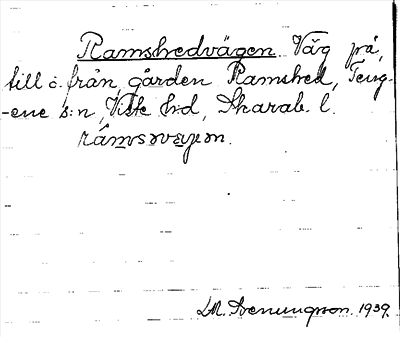 Ramshedvägen Väg på,
till o. från gården Ramshed, Teng-
-ene s:n, Viste h:d, Skarab. l.
L.M. Svenungsson. 1939.